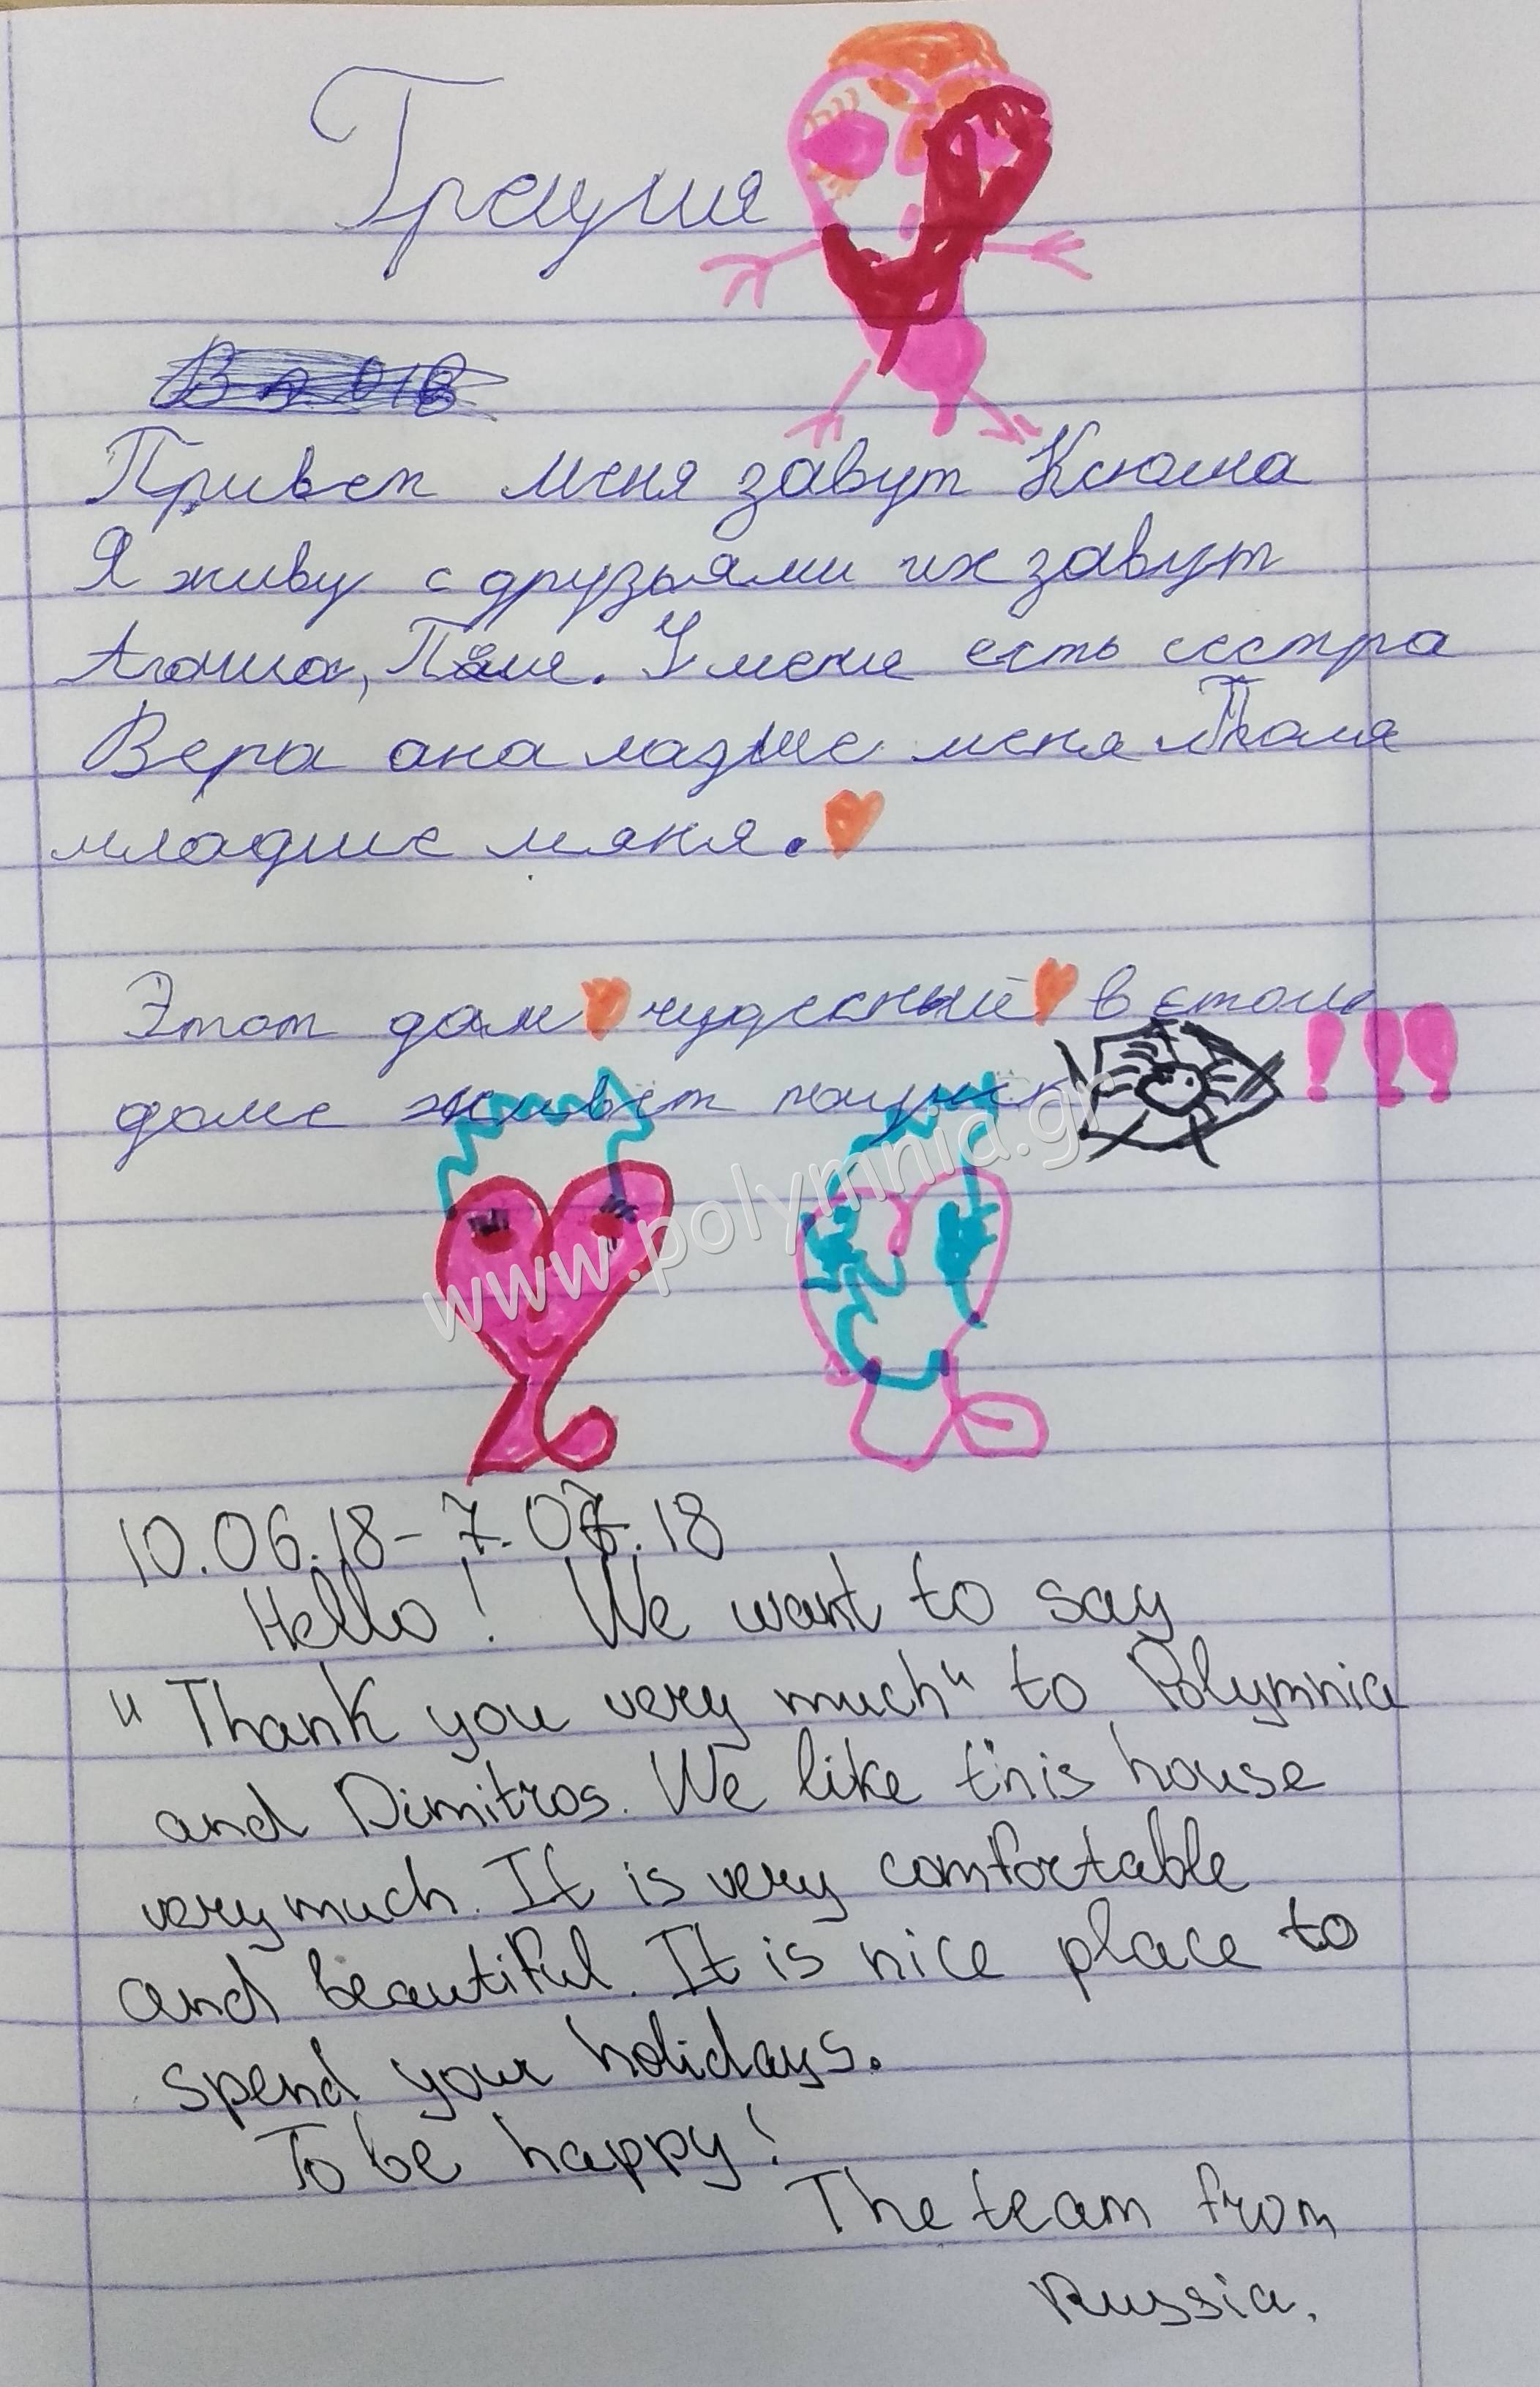 Греция
Привет меня завут Ксюша
Я живу с друзьями их завут
Поля. У меня есть сестра
Вера она млазше меня Поля
младше мяня.
Этот дом чудесный в етом
доме живёт паучек !!!
www.polymnia.gr
10.06.18-7.07.18
Hello! We want to say
"Thank you very much" to Polymnia
and Dimitros. We like this house
very much. It is very comfortable
and beautiful. It is nice place to
spend your holidays.
To be happy!
The team from
Russia.